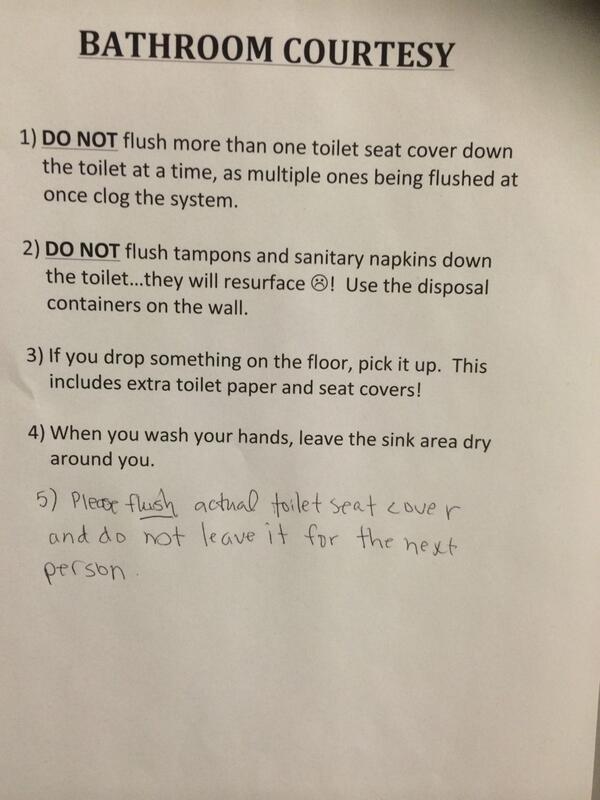 BATHROOM COURTESY
1) DO NOT flush more than one toilet seat cover down
the toilet at a time, as multiple ones being flushed at
once clog the system.
2) DO NOT flush tampons and sanitary napkins down
the toilet...they will resurface ☹! Use the disposal
containers on the wall.
3) If you drop something on the floor, pick it up. This
includes extra toilet paper and seat covers!
4) When you wash your hands, leave the sink area dry
around you.
5) Please flush actual toilet seat cover
and do not leave it for the next
person.